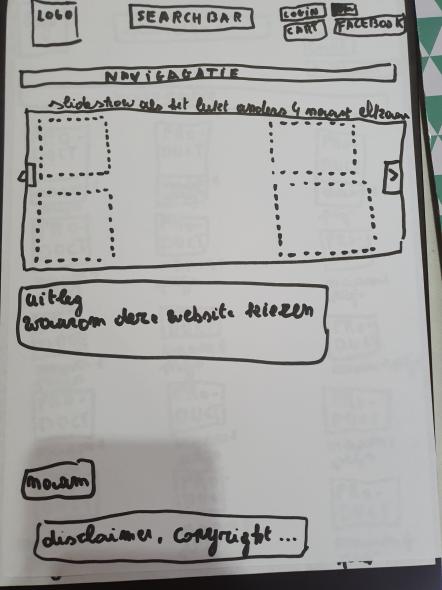 LOGO
SEARCH BAR
LOGIN
CART
FACEBOOK
NAVIGAGATIE
slideshow als het lukt anders 4 naast elkaar
<
>
uitleg
waarom deze website kiezen
disclaimer, copyright ...